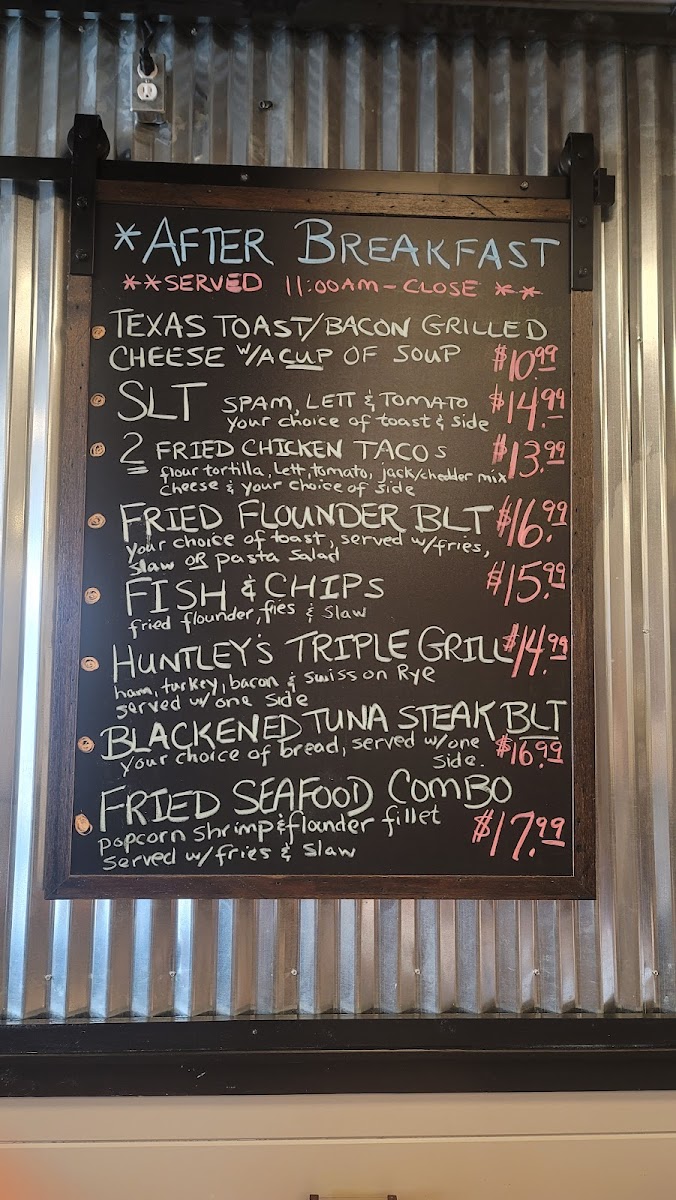 *AFTER BREAKFAST
**SERVED 11:00AM - CLOSE **
TEXAS TOAST/BACON GRILLED
CHEESE W/A CUP OF SOUP $10.99
SLT SPAM, LETT & TOMATO $14.99
your choice of toast & side
2 FRIED CHICKEN TACOS $13.99
flour tortilla, Lett, tomato, jack/chedder mix
cheese & your choice of side
FRIED FLOUNDER BLT $16.99
your choice of toast, served w/fries,
Slaw OR pasta Salad
FISH & CHIPS $15.99
fried flounder, fies & Slaw
HUNTLEY'S TRIPLE GRILL $14.99
ham, turkey, bacon & swiss on Rye
served w/ one side
BLACKENED TUNA STEAK BLT
your choice of bread, served w/one $16.99
side.
FRIED SEAFOOD COMBO
popcorn shrimp & flounder fillet $17.99
served w/ fries & slaw